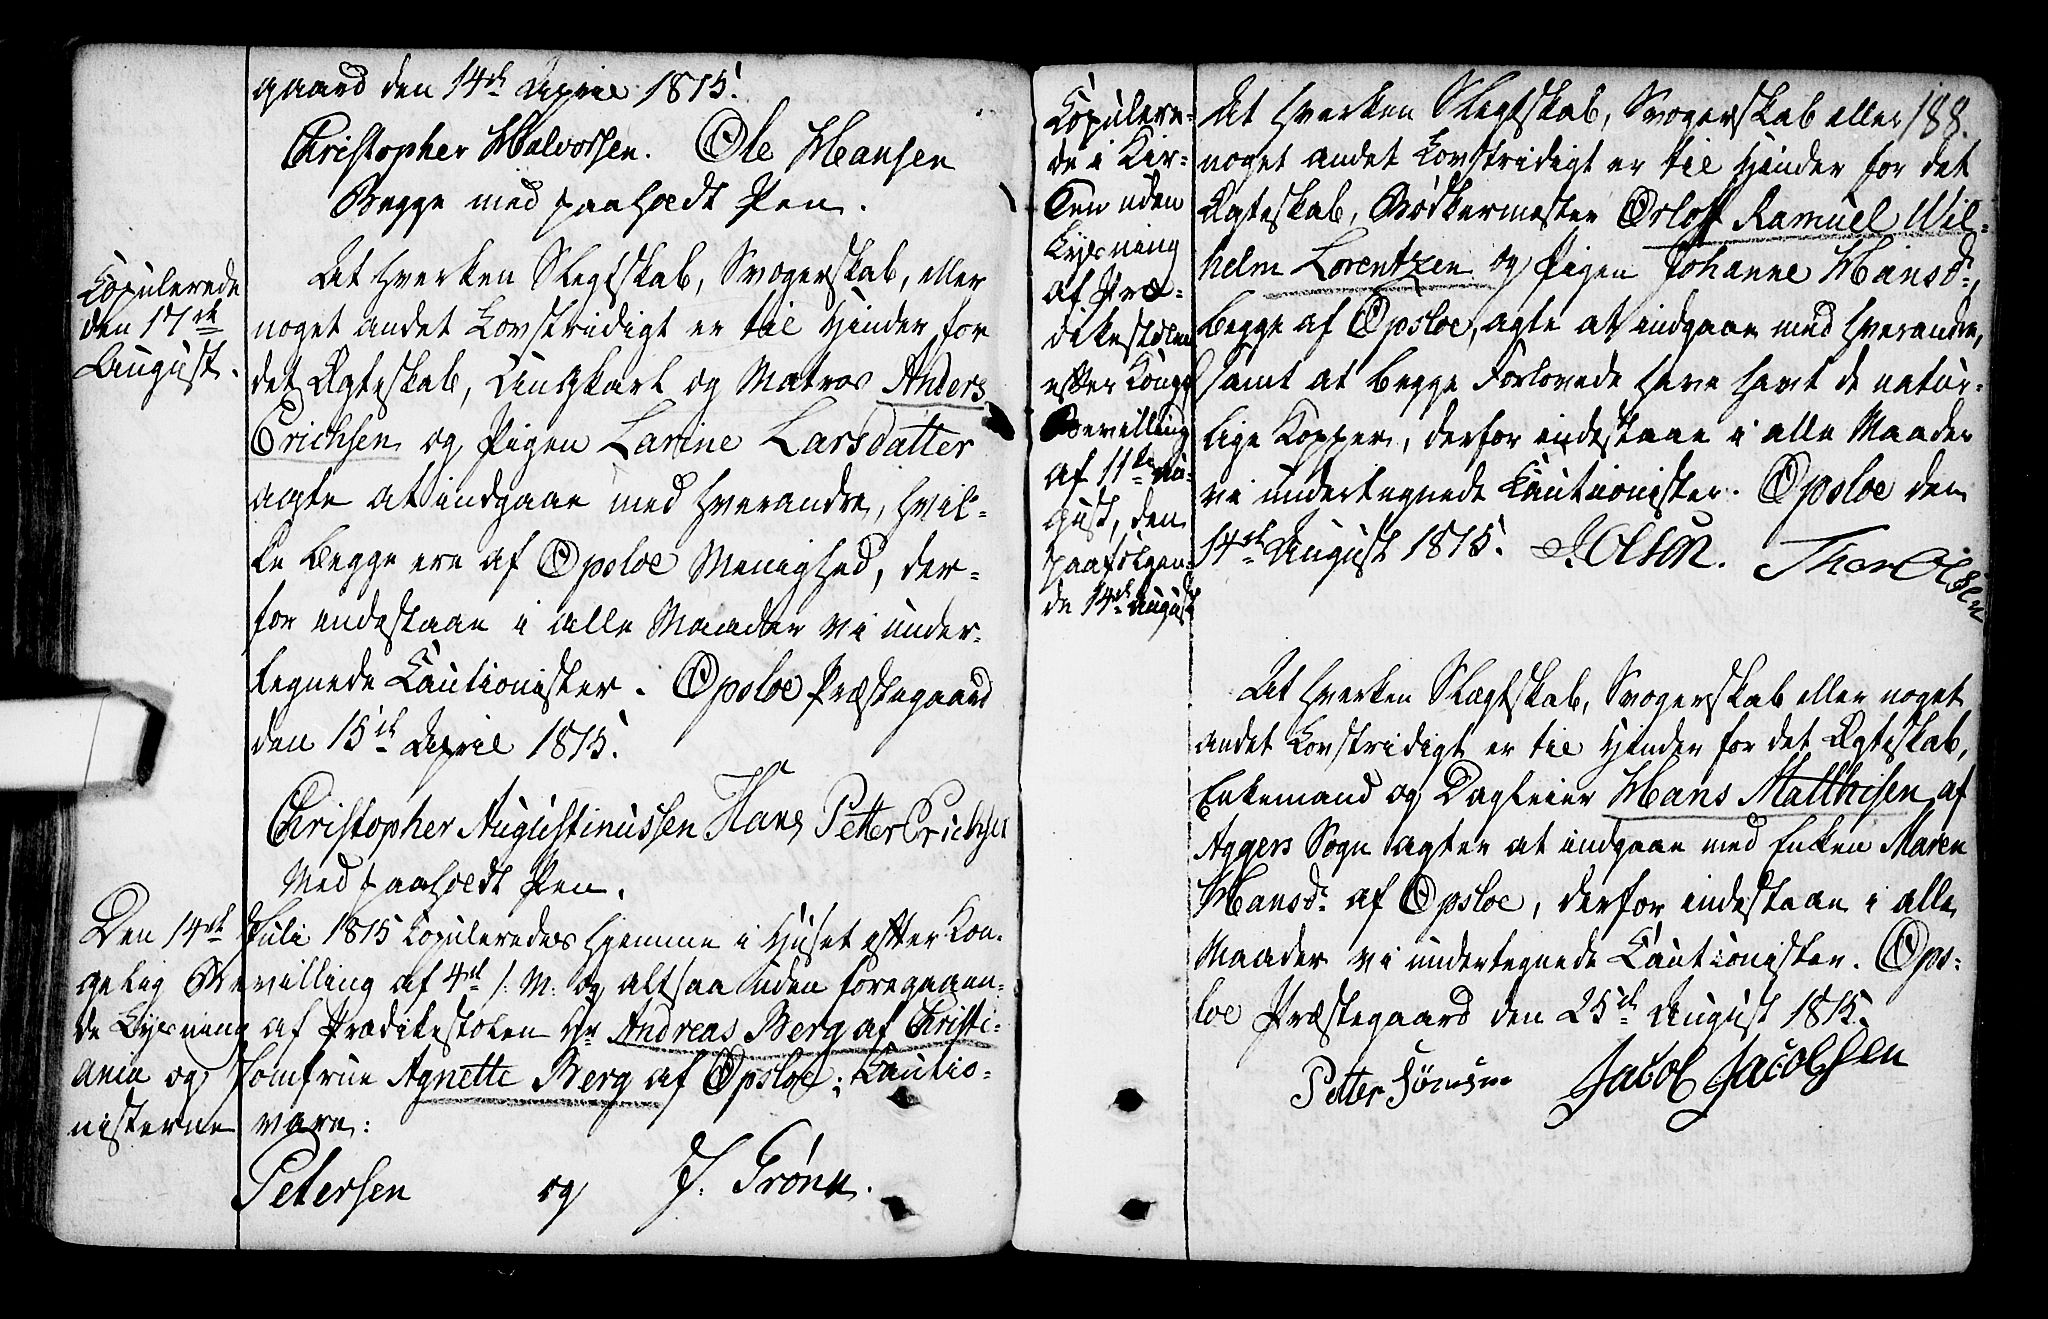 gaard den 14de April 1815.
Christopher Halvorsen. Ole Hansen
Begge med paaholdt Pen.
Copulerede
den 17de
August.
At hverken Slegtskab, Svogerskab, eller
noget andet Lovstridigt er til Hinder for
det Ægteskab, Ungkarl og Matros Anders
Erichsen og Pigen Larine Larsdatter
agte at indgaae med hverandre, hvil-
ke begge ere af Opsloe Menighed, der-
for indestaae i alle Maader vi under-
tegnede Cautionister. Opsloe Præstegaard
den 15de April 1815.
Christopher Augustinussen Hans Petter Erichsen
Med paaholdt Pen.
Den 14de Juli 1815 Copuleredes hjemme i Huset efter Kon-
gelig Bevilling af 4de s. M. og altsaa uden foregaaen-
de Lysning af Prædikestolen Hr Andreas Berg af Christi-
ania og Jomfrue Agnette Berg af Opsloe; Cautio-
nisterne vare:
Petersen og J. Grönn.
188.
Copulere-
de i Kir-
ken uden
Lysning
af Præ-
dikestolen
efter Kongl
Bevilling
af 11te Au-
gust, den
paafölgen-
de 14de August
At hverken Slegtskab, Svogerskab eller
noget andet Lovstridigt er til Hinder for det
Ægteskab, Bödkermester Orloff Ramuel Wil-
helm Lorentzen og Pigen Johanne Hansd:,
begge af Opsloe, agte at indgaae med hverandre,
samt at begge Forlovede have havt de natur-
lige Kopper, derfor indestaae i alle Maader
vi undertegnede Cautionister. Opsloe den
14de August 1815. J. Olsen. Thor Olsen
At hverken Slægtskab, Svogerskab eller noget
andet Lovstridigt er til Hinder for det Ægteskab,
Enkemand og Dagleier Hans Matthisen af
Aggers Sogn agter at indgaae med Enken Maren
Hansd: af Opsloe, derfor indestaae i alle
Maader vi undertegnede Cautionister. Ops-
loe Præstegaard den 25de August 1815.
Petter Jönsen Jacob Jacobsen